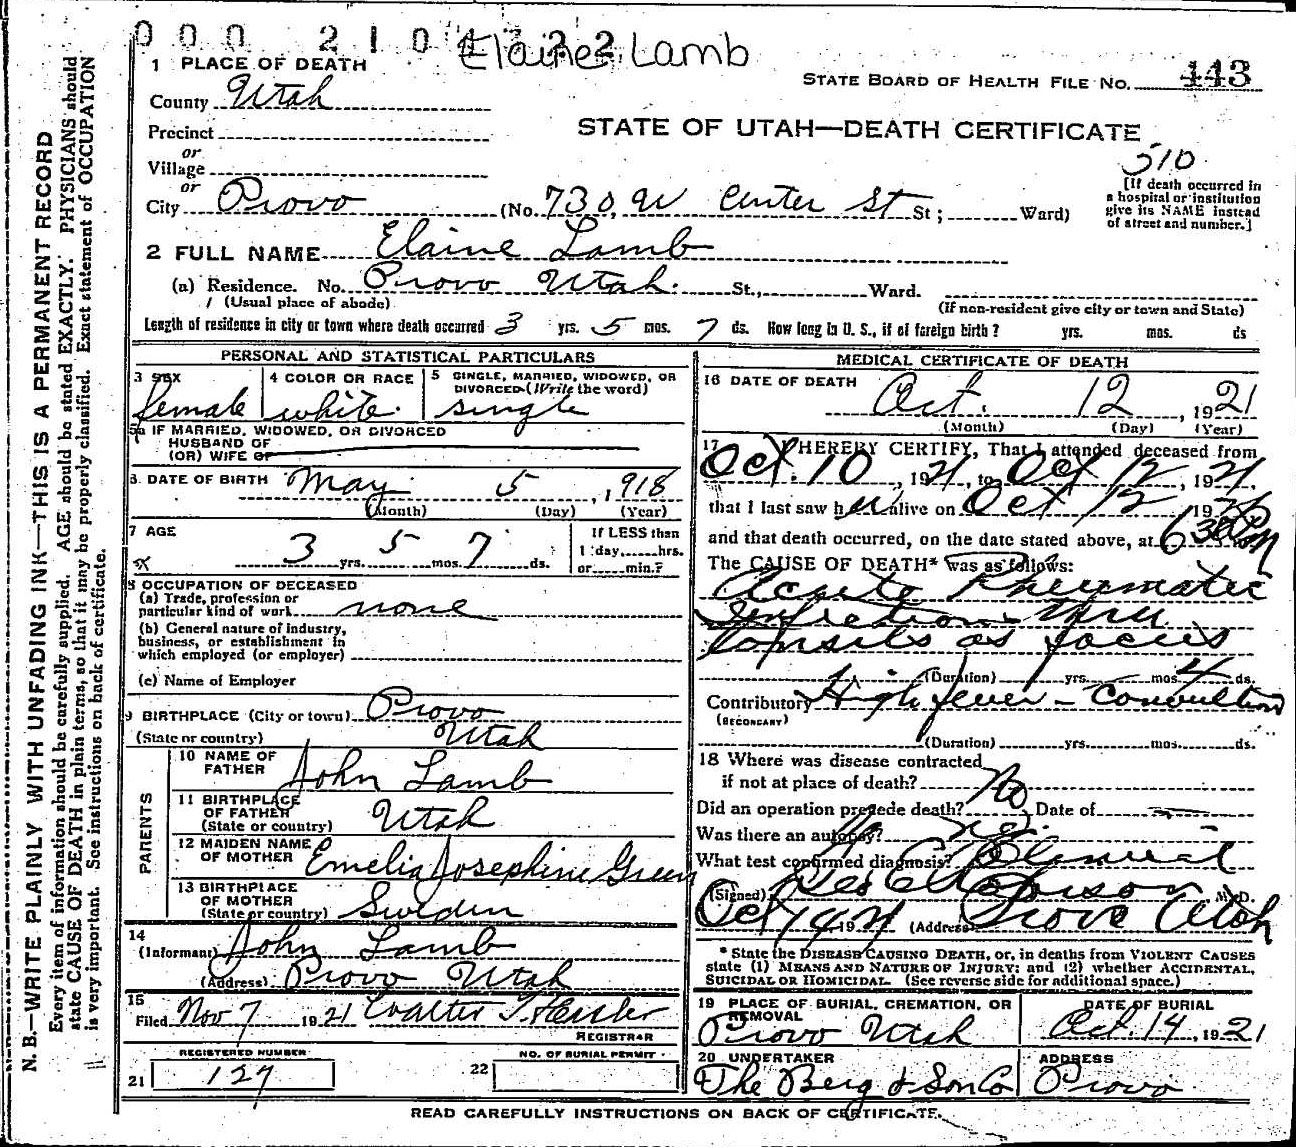 000 210 Elaine Lamb
1 PLACE OF DEATH
STATE BOARD OF HEALTH FILE No. 443
County Utah
STATE OF UTAH—DEATH CERTIFICATE
Precinct
or
Village
or
510
[If death occurred in
a hospital or institution
give its NAME instead
of street and number.]
City Provo (No. 730, W Center St St; Ward)
2 FULL NAME Elaine Lamb
(a) Residence. No. Provo Utah. St., Ward.
(Usual place of abode)
(If non-resident give city or town and State)
Length of residence in city or town where death occurred 3 yrs. 5 mos. 7 ds. How long in U. S., if of foreign birth? yrs. mos. ds
PERSONAL AND STATISTICAL PARTICULARS
3 SEX
female
4 COLOR OR RACE
white
5 SINGLE, MARRIED, WIDOWED, OR
DIVORCED (Write the word)
single
5a IF MARRIED, WIDOWED, OR DIVORCED
HUSBAND OF
(OR) WIFE OF
6. DATE OF BIRTH May 5, 1918
(Month) (Day) (Year)
7 AGE
3 yrs. 5 mos. 7 ds.
If LESS than
1 day, hrs.
or min.?
8 OCCUPATION OF DECEASED
(a) Trade, profession or
particular kind of work none
(b) General nature of industry,
business, or establishment in
which employed (or employer)
(c) Name of Employer
9 BIRTHPLACE (City or town) Provo
(State or country) Utah
PARENTS
10 NAME OF
FATHER John Lamb
11 BIRTHPLACE
OF FATHER
(State or country) Utah
12 MAIDEN NAME
OF MOTHER Emelia Josephine Green
13 BIRTHPLACE
OF MOTHER
(State or country) Sweden
14
(Informant) John Lamb
(Address) Provo Utah
15
Filed Nov 7 1921 Walter T. Hasler
REGISTRAR
REGISTERED NUMBER
21 127
NO. OF BURIAL PERMIT
22
MEDICAL CERTIFICATE OF DEATH
16 DATE OF DEATH
Oct. 12, 1921
(Month) (Day) (Year)
17 I HEREBY CERTIFY, That I attended deceased from
Oct. 10, 1921, to Oct 12, 1921.
that I last saw her alive on Oct 12 19
and that death occurred, on the date stated above, at 6 30 Pm
The CAUSE OF DEATH* was as follows:
Acute Rheumatic
Infection - thru
tonsils as focus
(Duration) yrs. mos. 4 ds.
Contributory High fever - Convultion
(SECONDARY)
(Duration) yrs. mos. ds.
18 Where was disease contracted
if not at place of death?
Did an operation precede death? No Date of
Was there an autopsy? no.
What test confirmed diagnosis? Clinical
(Signed) M. D.
Oct 14 1921 (Address) Provo Utah
* State the DISEASE CAUSING DEATH, or, in deaths from VIOLENT CAUSES
state (1) MEANS AND NATURE OF INJURY; and (2) whether ACCIDENTAL,
SUICIDAL OR HOMICIDAL. (See reverse side for additional space.)
19 PLACE OF BURIAL, CREMATION, OR
REMOVAL
Provo Utah
DATE OF BURIAL
Oct. 14, 1921
20 UNDERTAKER
The Berg & Son Co
ADDRESS
Provo
READ CAREFULLY INSTRUCTIONS ON BACK OF CERTIFICATE.
N. B.—WRITE PLAINLY WITH UNFADING INK—THIS IS A PERMANENT RECORD
Every item of information should be carefully supplied. AGE should be stated EXACTLY. PHYSICIANS should
state CAUSE OF DEATH in plain terms, so that it may be properly classified. Exact statement of OCCUPATION
is very important. See instructions on back of certificate.